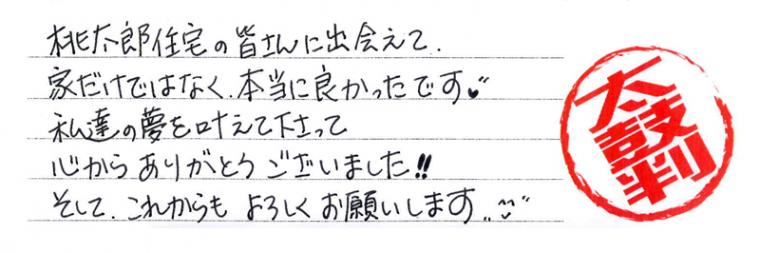 桃太郎住宅の皆さんに出会えて.
家だけではなく、本当に良かったです
私達の夢を叶えて下さって
心からありがとうございました!!
そして、これからもよろしくお願いします..
太鼓判